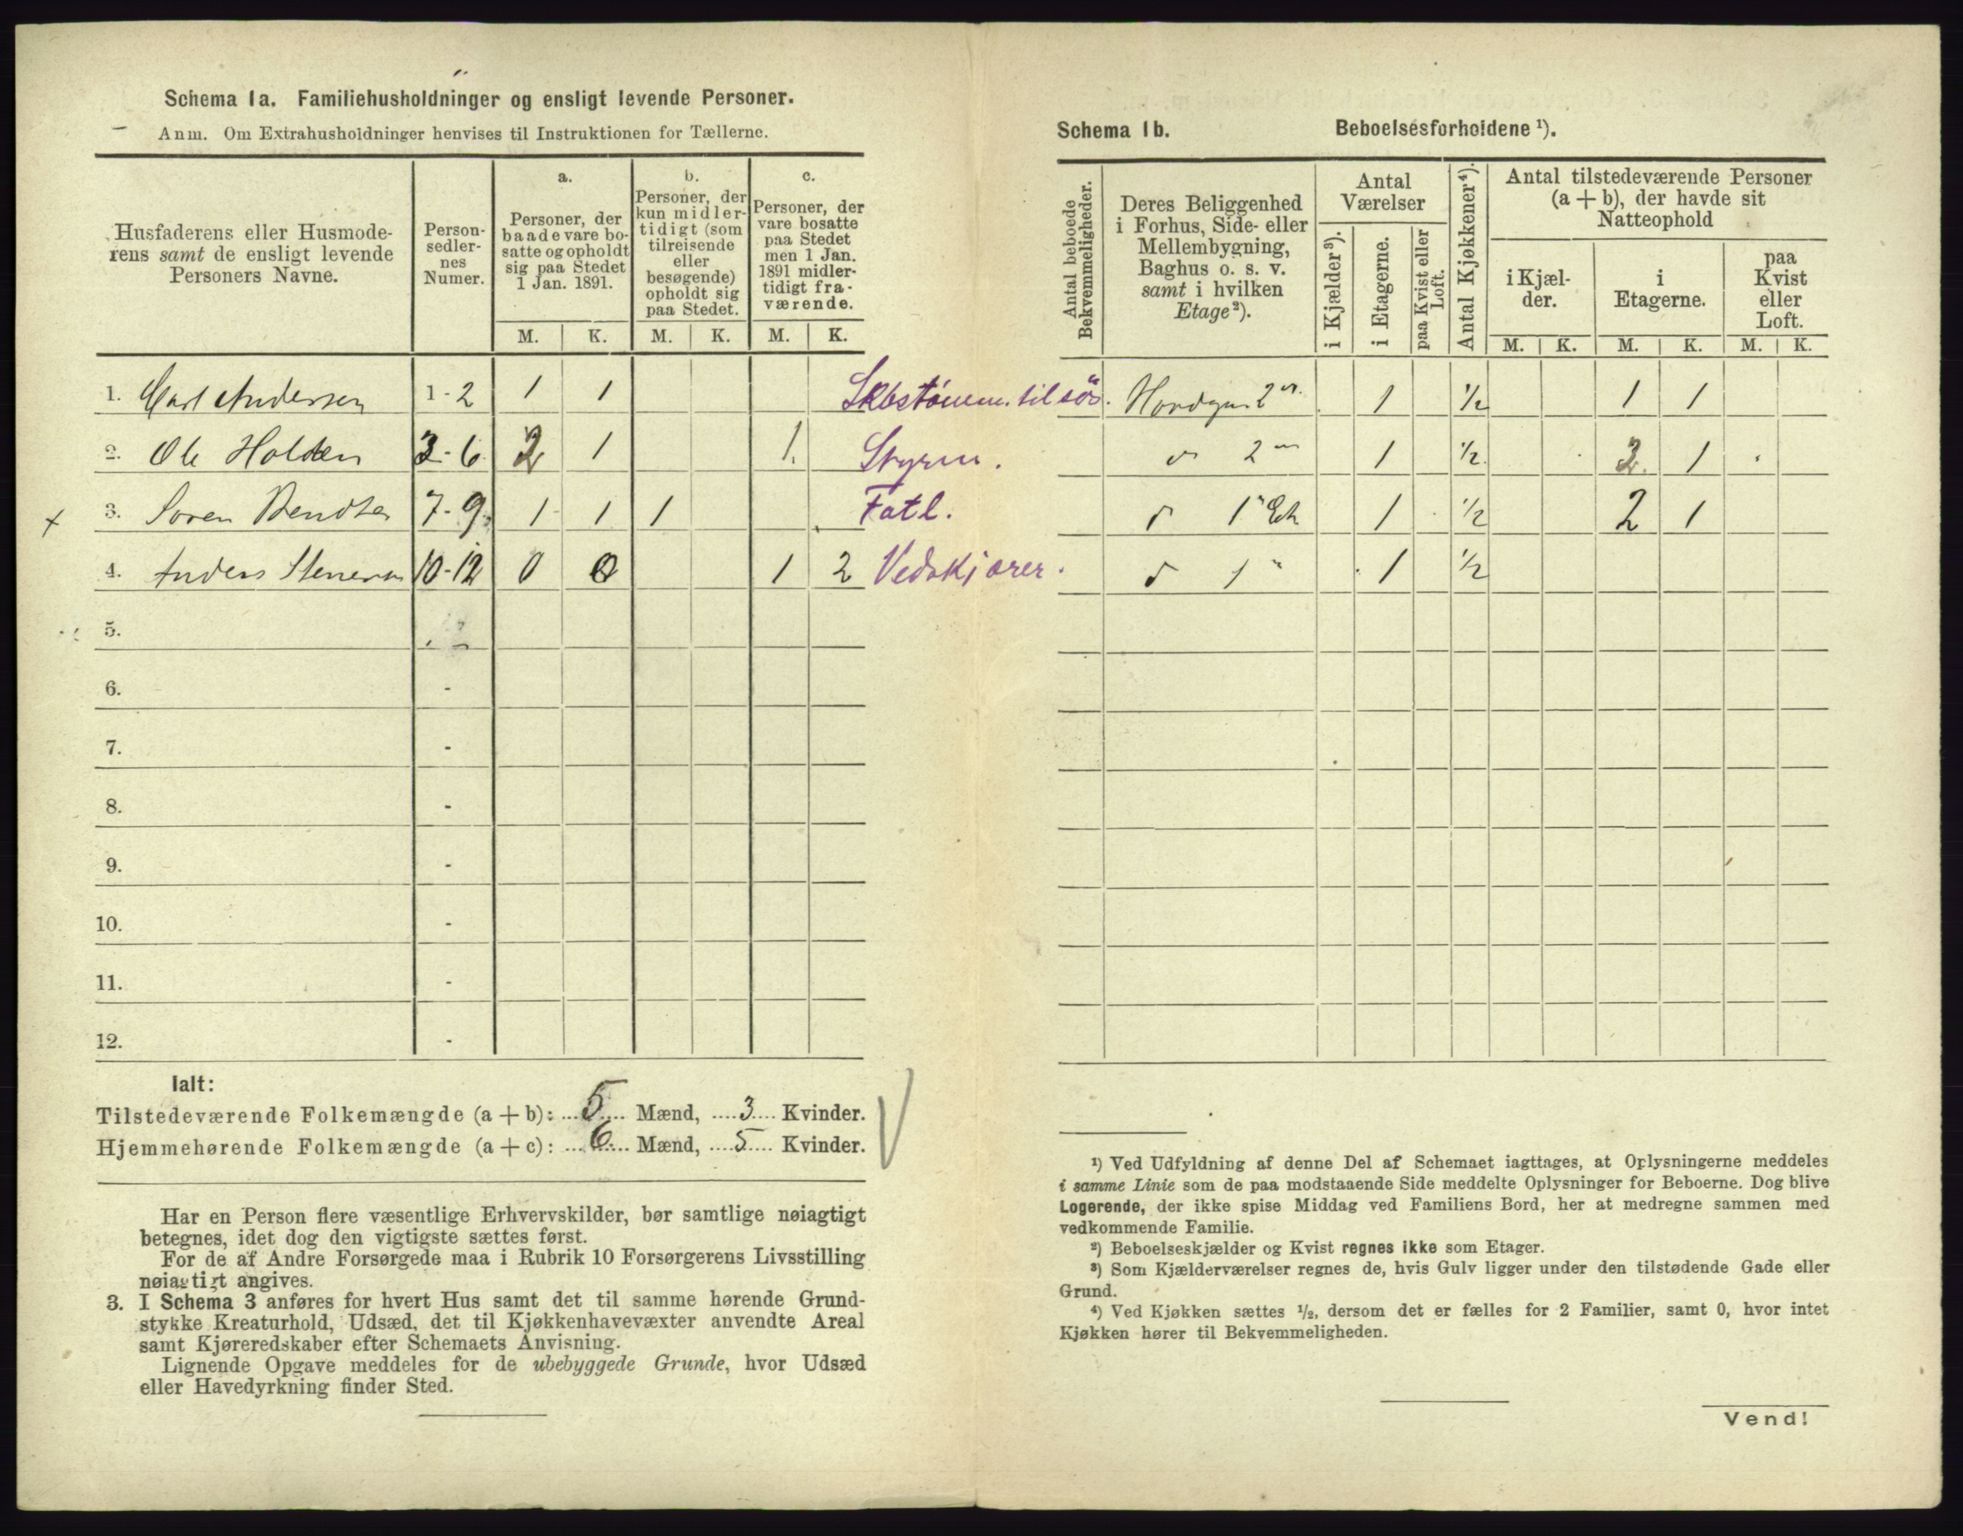 Schema 1a. Familiehusholdninger og ensligt levende Personer.
Anm. Om Extrahusholdninger henvises til Instruktionen for Tællerne.
Husfaderens eller Husmode-
rens samt de ensligt levende
Personers Navne.
Person-
sedler-
nes
Numer.
a.
Personer, der
baade vare bo-
satte og opholdt
sig paa Stedet
1 Jan. 1891.
b.
Personer, der
kun midler-
tidigt (som
tilreisende
eller
besøgende)
opholdt sig
paa Stedet.
c.
Personer, der
vare bosatte
paa Stedet
men 1 Jan.
1891 midler-
tidigt fra-
værende.
M. K. M. K. M. K.
1. Carl Andersen 1-2 1 1
2. Ole Holden 3-6 2 1 1 Styrm.
3. Soren Bendtsen 7-9 1 1 1 Fatl.
4. Anders 10-12 0 0 1 2 Vedskjærer.
5.
6. -
7. -
8. -
9. -
10. -
11. -
12. -
Ialt:
Tilstedeværende Folkemængde (a+b): 5 Mænd, 3 Kvinder.
Hjemmehørende Folkemængde (a+c): 6 Mænd, 5 Kvinder.
Har en Person flere væsentlige Erhvervskilder, bør samtlige nøiagtigt
betegnes, idet dog den vigtigste sættes først.
For de af Andre Forsørgede maa i Rubrik 10 Forsørgerens Livsstilling
nøiagtigt angives.
3. I Schema 3 anføres for hvert Hus samt det til samme hørende Grund-
stykke Kreaturhold, Udsæd, det til Kjøkkenhavevæxter anvendte Areal
samt Kjøreredskaber efter Schemaets Anvisning.
Lignende Opgave meddeles for de ubebyggede Grunde, hvor Udsæd
eller Havedyrkning finder Sted.
Schema 1b. Beboelsesforholdene ¹).
Antal beboede
Bekvemmeligheder.
Deres Beliggenhed
i Forhus, Side- eller
Mellembygning,
Baghus o. s. v.
samt i hvilken
Etage²).
Antal
Værelser
i Kjælder³).
i Etagerne.
paa Kvist eller
Loft.
Antal Kjøkkener⁴).
Antal tilstedeværende Personer
(a+b), der havde sit
Natteophold
i Kjæl-
der.
i
Etagerne.
paa
Kvist
eller
Loft.
M. K. M. K. M. K.
2 1 ½ 1 1
2 1 ½ 2 1
1 Etg 1 ½ 2 1
1 1 ½
¹) Ved Udfyldning af denne Del af Schemaet iagttages, at Oplysningerne meddeles
i samme Linie som de paa modstaaende Side meddelte Oplysninger for Beboerne. Dog blive
Logerende, der ikke spise Middag ved Familiens Bord, her at medregne sammen med
vedkommende Familie.
²) Beboelseskjælder og Kvist regnes ikke som Etager.
³) Som Kjælderværelser regnes de, hvis Gulv ligger under den tilstødende Gade eller
Grund.
⁴) Ved Kjøkken sættes ½, dersom det er fælles for 2 Familier, samt 0, hvor intet
Kjøkken hører til Bekvemmeligheden.
Vend!